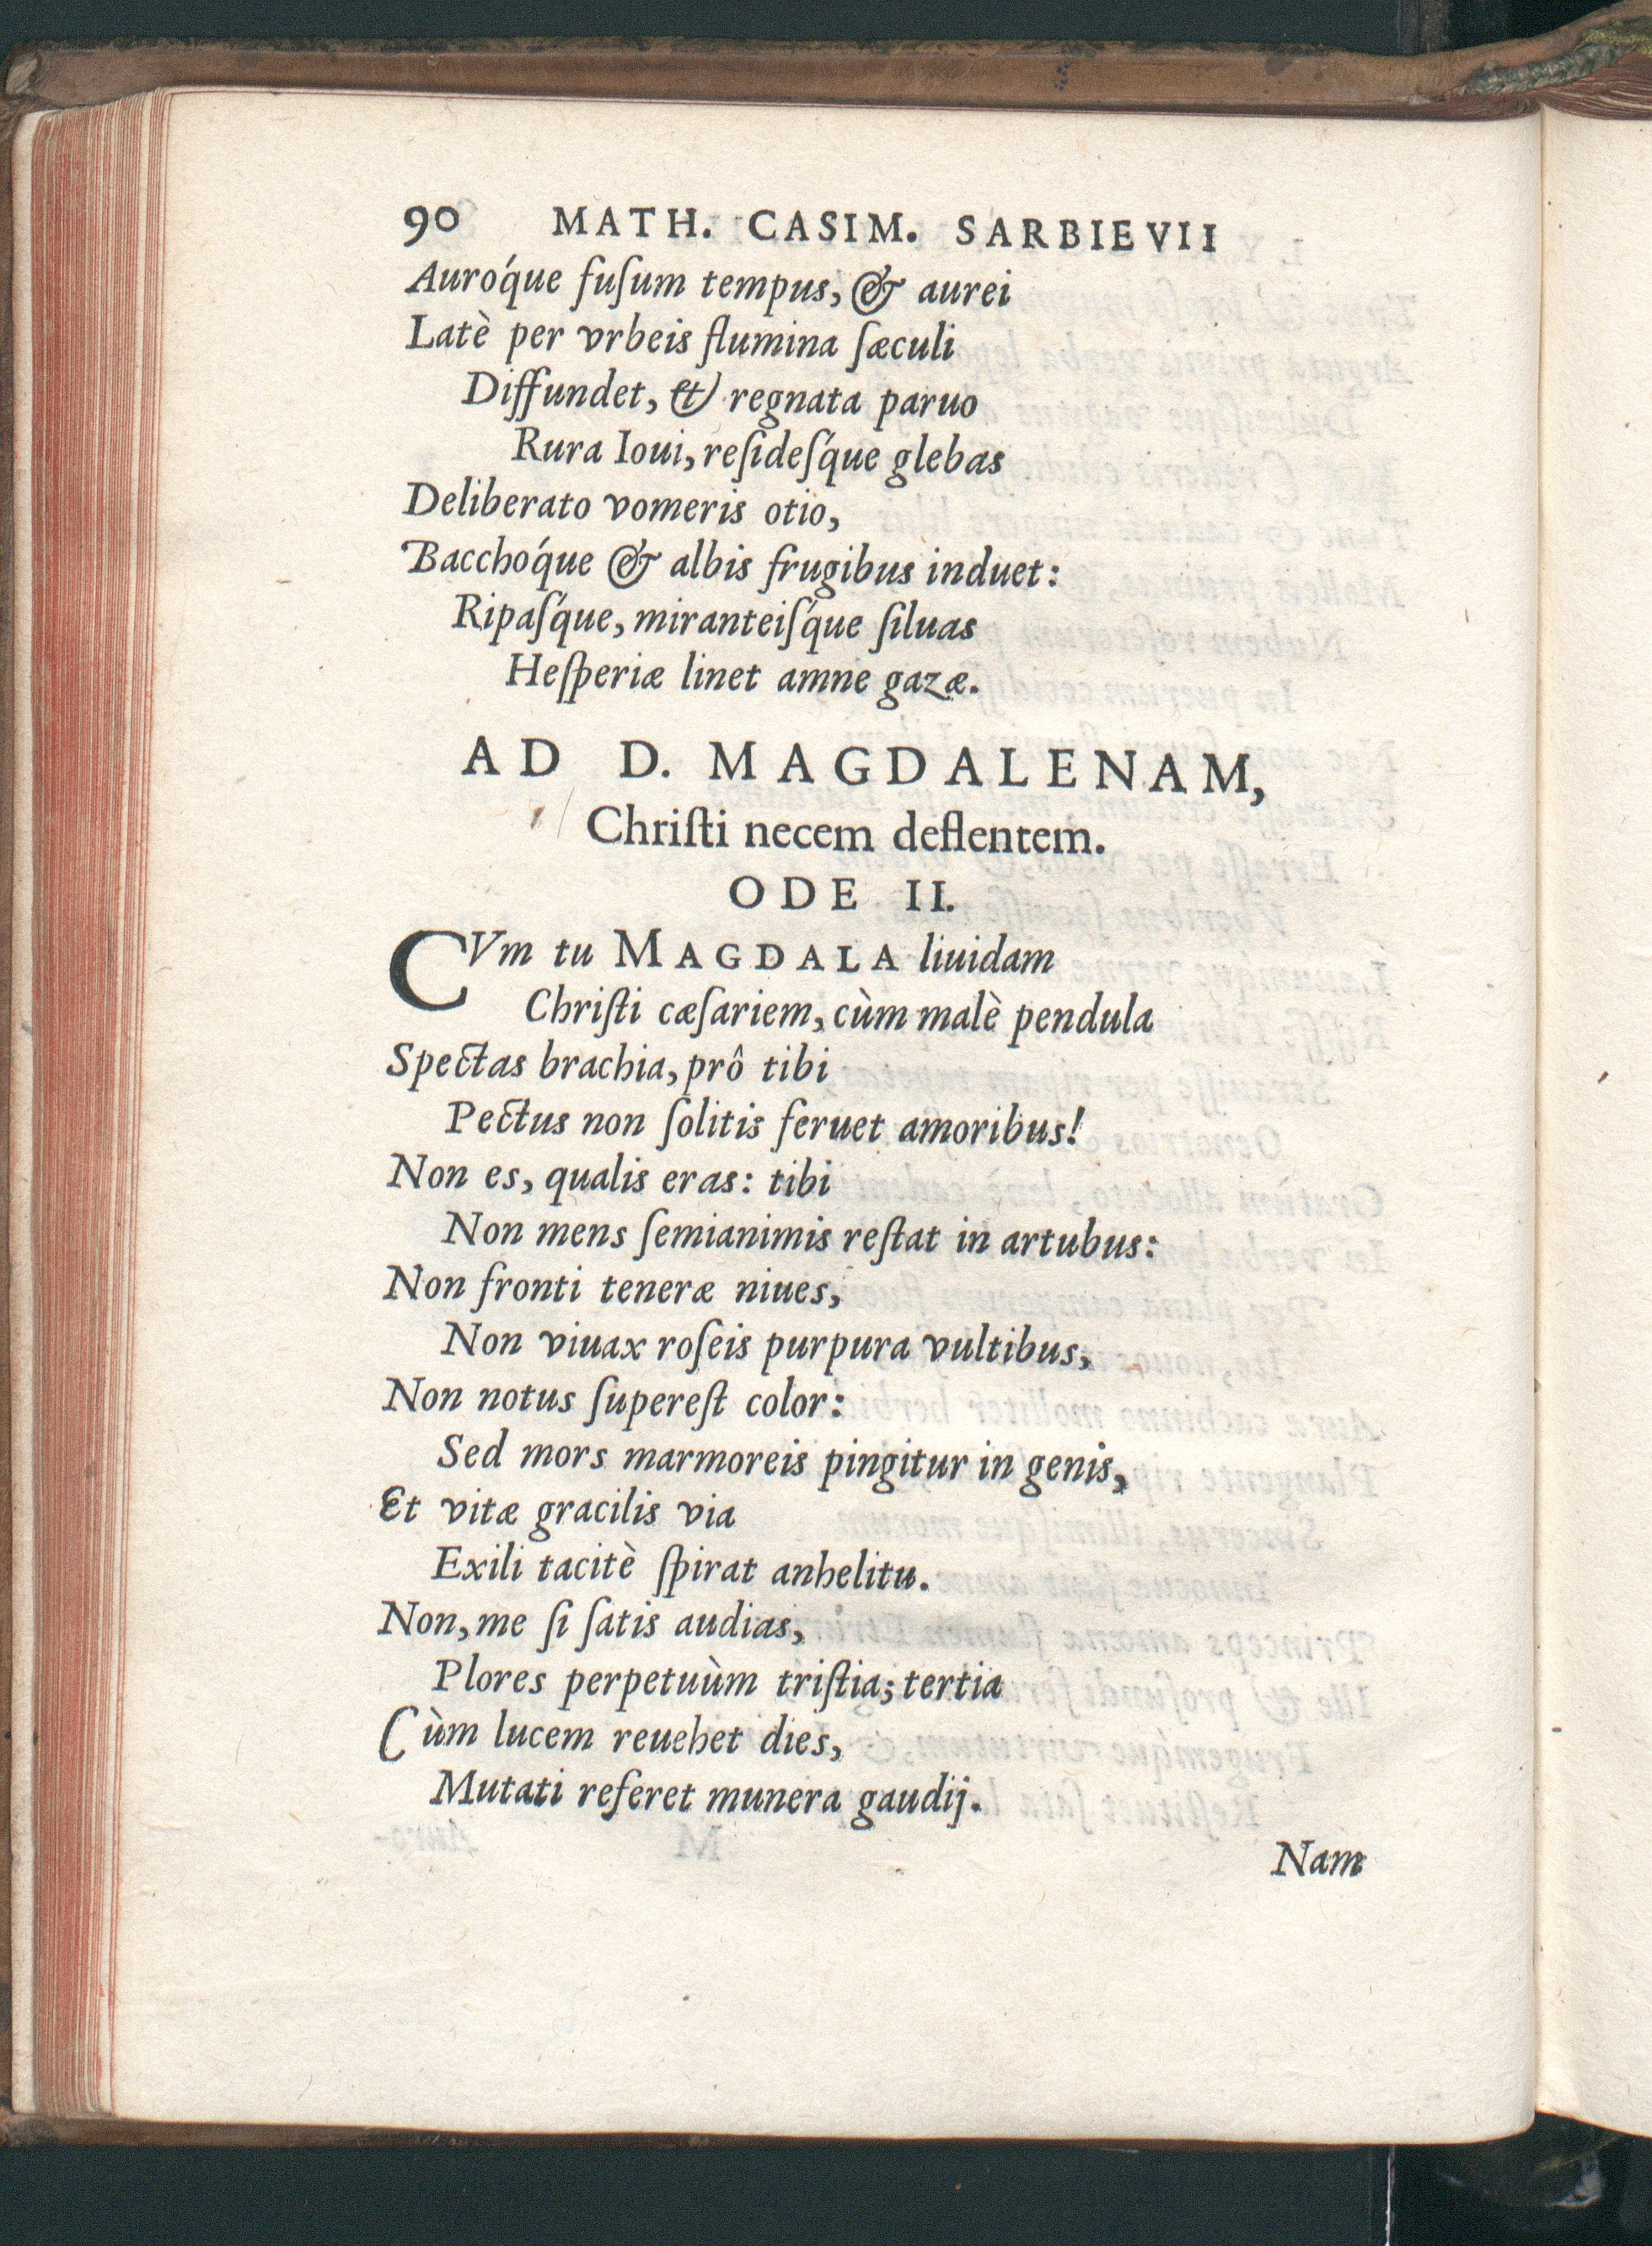 90 MATH. CASIM. SARBIEVII
Auroq́ue fuſum tempus, & aurei
Latè per vrbeis flumina ſæculi
Diffundet, & regnata paruo
Rura Ioui, reſideſq́ue glebas
Deliberato vomeris otio,
Bacchoq́ue & albis frugibus induet:
Ripaſq́ue, miranteiſq́ue ſiluas
Heſperiæ linet amne gazæ.
AD D. MAGDALENAM,
Chriſti necem deflentem.
ODE II.
CVm tu MAGDALA liuidam
Chriſti cæſariem, cùm malè pendula
Spectas brachia, prô tibi
Pectus non ſolitis feruet amoribus!
Non es, qualis eras: tibi
Non mens ſemianimis reſtat in artubus:
Non fronti teneræ niues,
Non viuax roſeis purpura vultibus,
Non notus ſupereſt color:
Sed mors marmoreis pingitur in genis,
Et vitæ gracilis via
Exili tacitè ſpirat anhelitu.
Non, me ſi ſatis audias,
Plores perpetuùm triſtia; tertia
Cùm lucem reuehet dies,
Mutati referet munera gaudij.
Nam